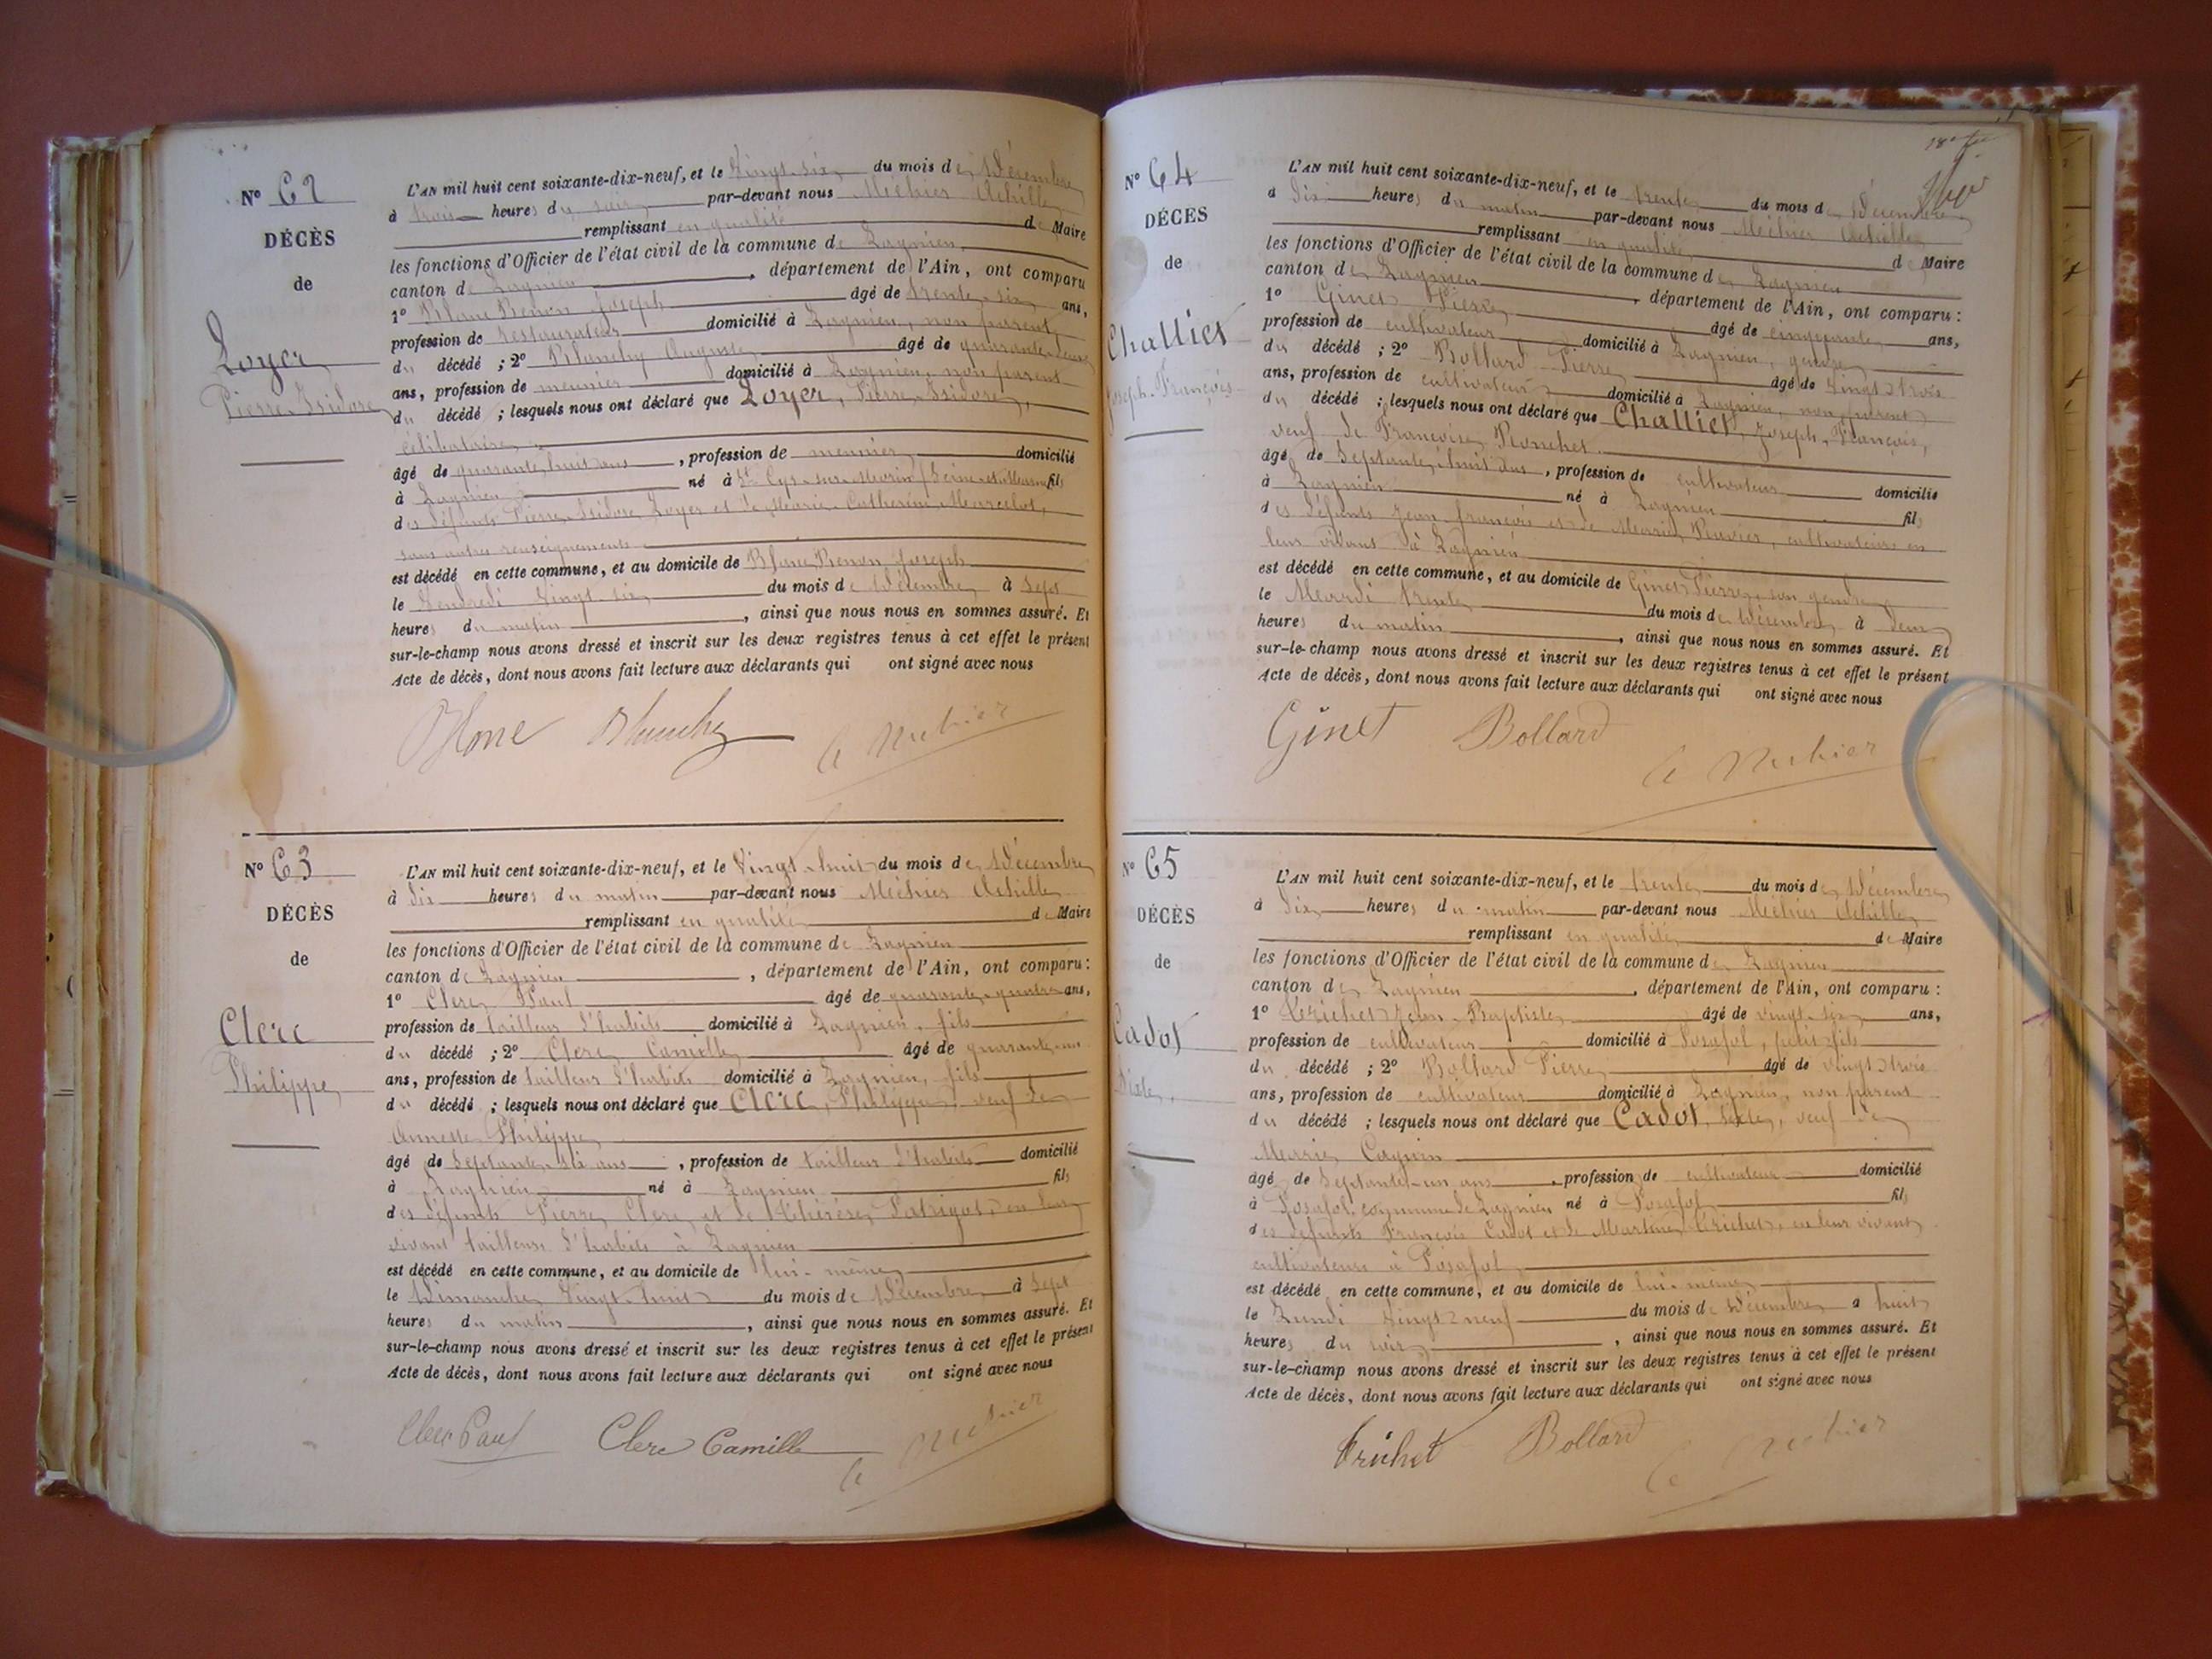 N° 62
DÉCÈS
de
Loyer
Pierre-Isidore
L'AN mil huit cent soixante-dix-neuf, et le vingt-six du mois de Décembre
à trois heures du soir par-devant nous Méhier Achille
remplissant en qualité de Maire
les fonctions d'Officier de l'état civil de la commune de Lagnieu
canton de Lagnieu, département de l'Ain, ont comparu
1° Blanc Benon Joseph âgé de trente-six ans,
profession de restaurateur domicilié à Lagnieu, non parent
du décédé ; 2° Blanchy Auguste âgé de quarante-deux
ans, profession de meunier domicilié à Lagnieu, non parent
du décédé ; lesquels nous ont déclaré que Loyer, Pierre-Isidore,
célibataire,
âgé de quarante-huit ans, profession de meunier domicilié
à Lagnieu né à St Cyr-sur-Morin (Seine-et-Marne) fils
des défunts Pierre-Isidore Loyer et de Marie-Catherine Marcelot,
sans autres renseignements
est décédé en cette commune, et au domicile de Blanc Benon, Joseph
le Vendredi vingt-six du mois de Décembre à sept
heures du matin, ainsi que nous nous en sommes assuré. Et
sur-le-champ nous avons dressé et inscrit sur les deux registres tenus à cet effet le présent
Acte de décès, dont nous avons fait lecture aux déclarants qui ont signé avec nous
A Méhier
N° 63
DÉCÈS
de
Clerc
Philippe
L'AN mil huit cent soixante-dix-neuf, et le vingt-huit du mois de Décembre
à dix heures du matin par-devant nous Méhier Achille
remplissant en qualité de Maire
les fonctions d'Officier de l'état civil de la commune de Lagnieu
canton de Lagnieu, département de l'Ain, ont comparu :
1° Clerc Paul âgé de quarante-quatre ans,
profession de tailleur d'habits domicilié à Lagnieu, fils
du décédé ; 2° Clerc Camille âgé de quarante-un
ans, profession de tailleur d'habits domicilié à Lagnieu, fils
du décédé ; lesquels nous ont déclaré que Clerc, Philippe, veuf de
Philippe
âgé de septante-six ans, profession de tailleur d'habits domicilié
à Lagnieu né à Lagnieu fils
des défunts Pierre Clerc et de Thérèse Patrigot, en leur
vivant tailleurs d'habits à Lagnieu
est décédé en cette commune, et au domicile de lui-même
le Dimanche vingt-huit du mois de Décembre à sept
heures du matin, ainsi que nous nous en sommes assuré. Et
sur-le-champ nous avons dressé et inscrit sur les deux registres tenus à cet effet le présent
Acte de décès, dont nous avons fait lecture aux déclarants qui ont signé avec nous
Clerc Paul Clerc Camille A Méhier
N° 64
DÉCÈS
de
Challiet
Joseph-François
L'AN mil huit cent soixante-dix-neuf, et le trente du mois de Décembre
à dix heures du matin par-devant nous Méhier Achille
remplissant en qualité de Maire
les fonctions d'Officier de l'état civil de la commune de Lagnieu
canton de Lagnieu, département de l'Ain, ont comparu :
1° Ginet Pierre âgé de cinquante ans,
profession de cultivateur domicilié à Lagnieu, gendre
du décédé ; 2° Bollard Pierre âgé de vingt-trois
ans, profession de cultivateur domicilié à Lagnieu, non parent
du décédé ; lesquels nous ont déclaré que Challiet, Joseph-François,
veuf de Françoise
âgé de septante-huit ans, profession de cultivateur domicilié
à Lagnieu né à Lagnieu fils
des défunts Jean-François et de Marie, cultivateurs en
leur vivant à Lagnieu
est décédé en cette commune, et au domicile de Ginet Pierre, son gendre
le Mardi trente du mois de Décembre à deux
heures du matin, ainsi que nous nous en sommes assuré. Et
sur-le-champ nous avons dressé et inscrit sur les deux registres tenus à cet effet le présent
Acte de décès, dont nous avons fait lecture aux déclarants qui ont signé avec nous
Ginet Bollard A Méhier
N° 65
DÉCÈS
de
Cadot
L'AN mil huit cent soixante-dix-neuf, et le trente du mois de Décembre
à dix heures du matin par-devant nous Méhier Achille
remplissant en qualité de Maire
les fonctions d'Officier de l'état civil de la commune de Lagnieu
canton de Lagnieu, département de l'Ain, ont comparu :
1° Trichet Jean-Baptiste âgé de vingt-six ans,
profession de cultivateur domicilié à Posafol, petit-fils
du décédé ; 2° Bollard Pierre âgé de vingt-trois
ans, profession de cultivateur domicilié à Lagnieu, non parent
du décédé ; lesquels nous ont déclaré que Cadot, veuf de
Marie Cagnin
âgé de septante-un ans, profession de cultivateur domicilié
à Posafol, commune de Lagnieu né à Posafol fils
des défunts François Cadot et de Martine Trichet, en leur vivant
cultivateurs à Posafol
est décédé en cette commune, et au domicile de lui-même
le Lundi vingt-neuf du mois de Décembre à huit
heures du soir, ainsi que nous nous en sommes assuré. Et
sur-le-champ nous avons dressé et inscrit sur les deux registres tenus à cet effet le présent
Acte de décès, dont nous avons fait lecture aux déclarants qui ont signé avec nous
Trichet Bollard A Méhier